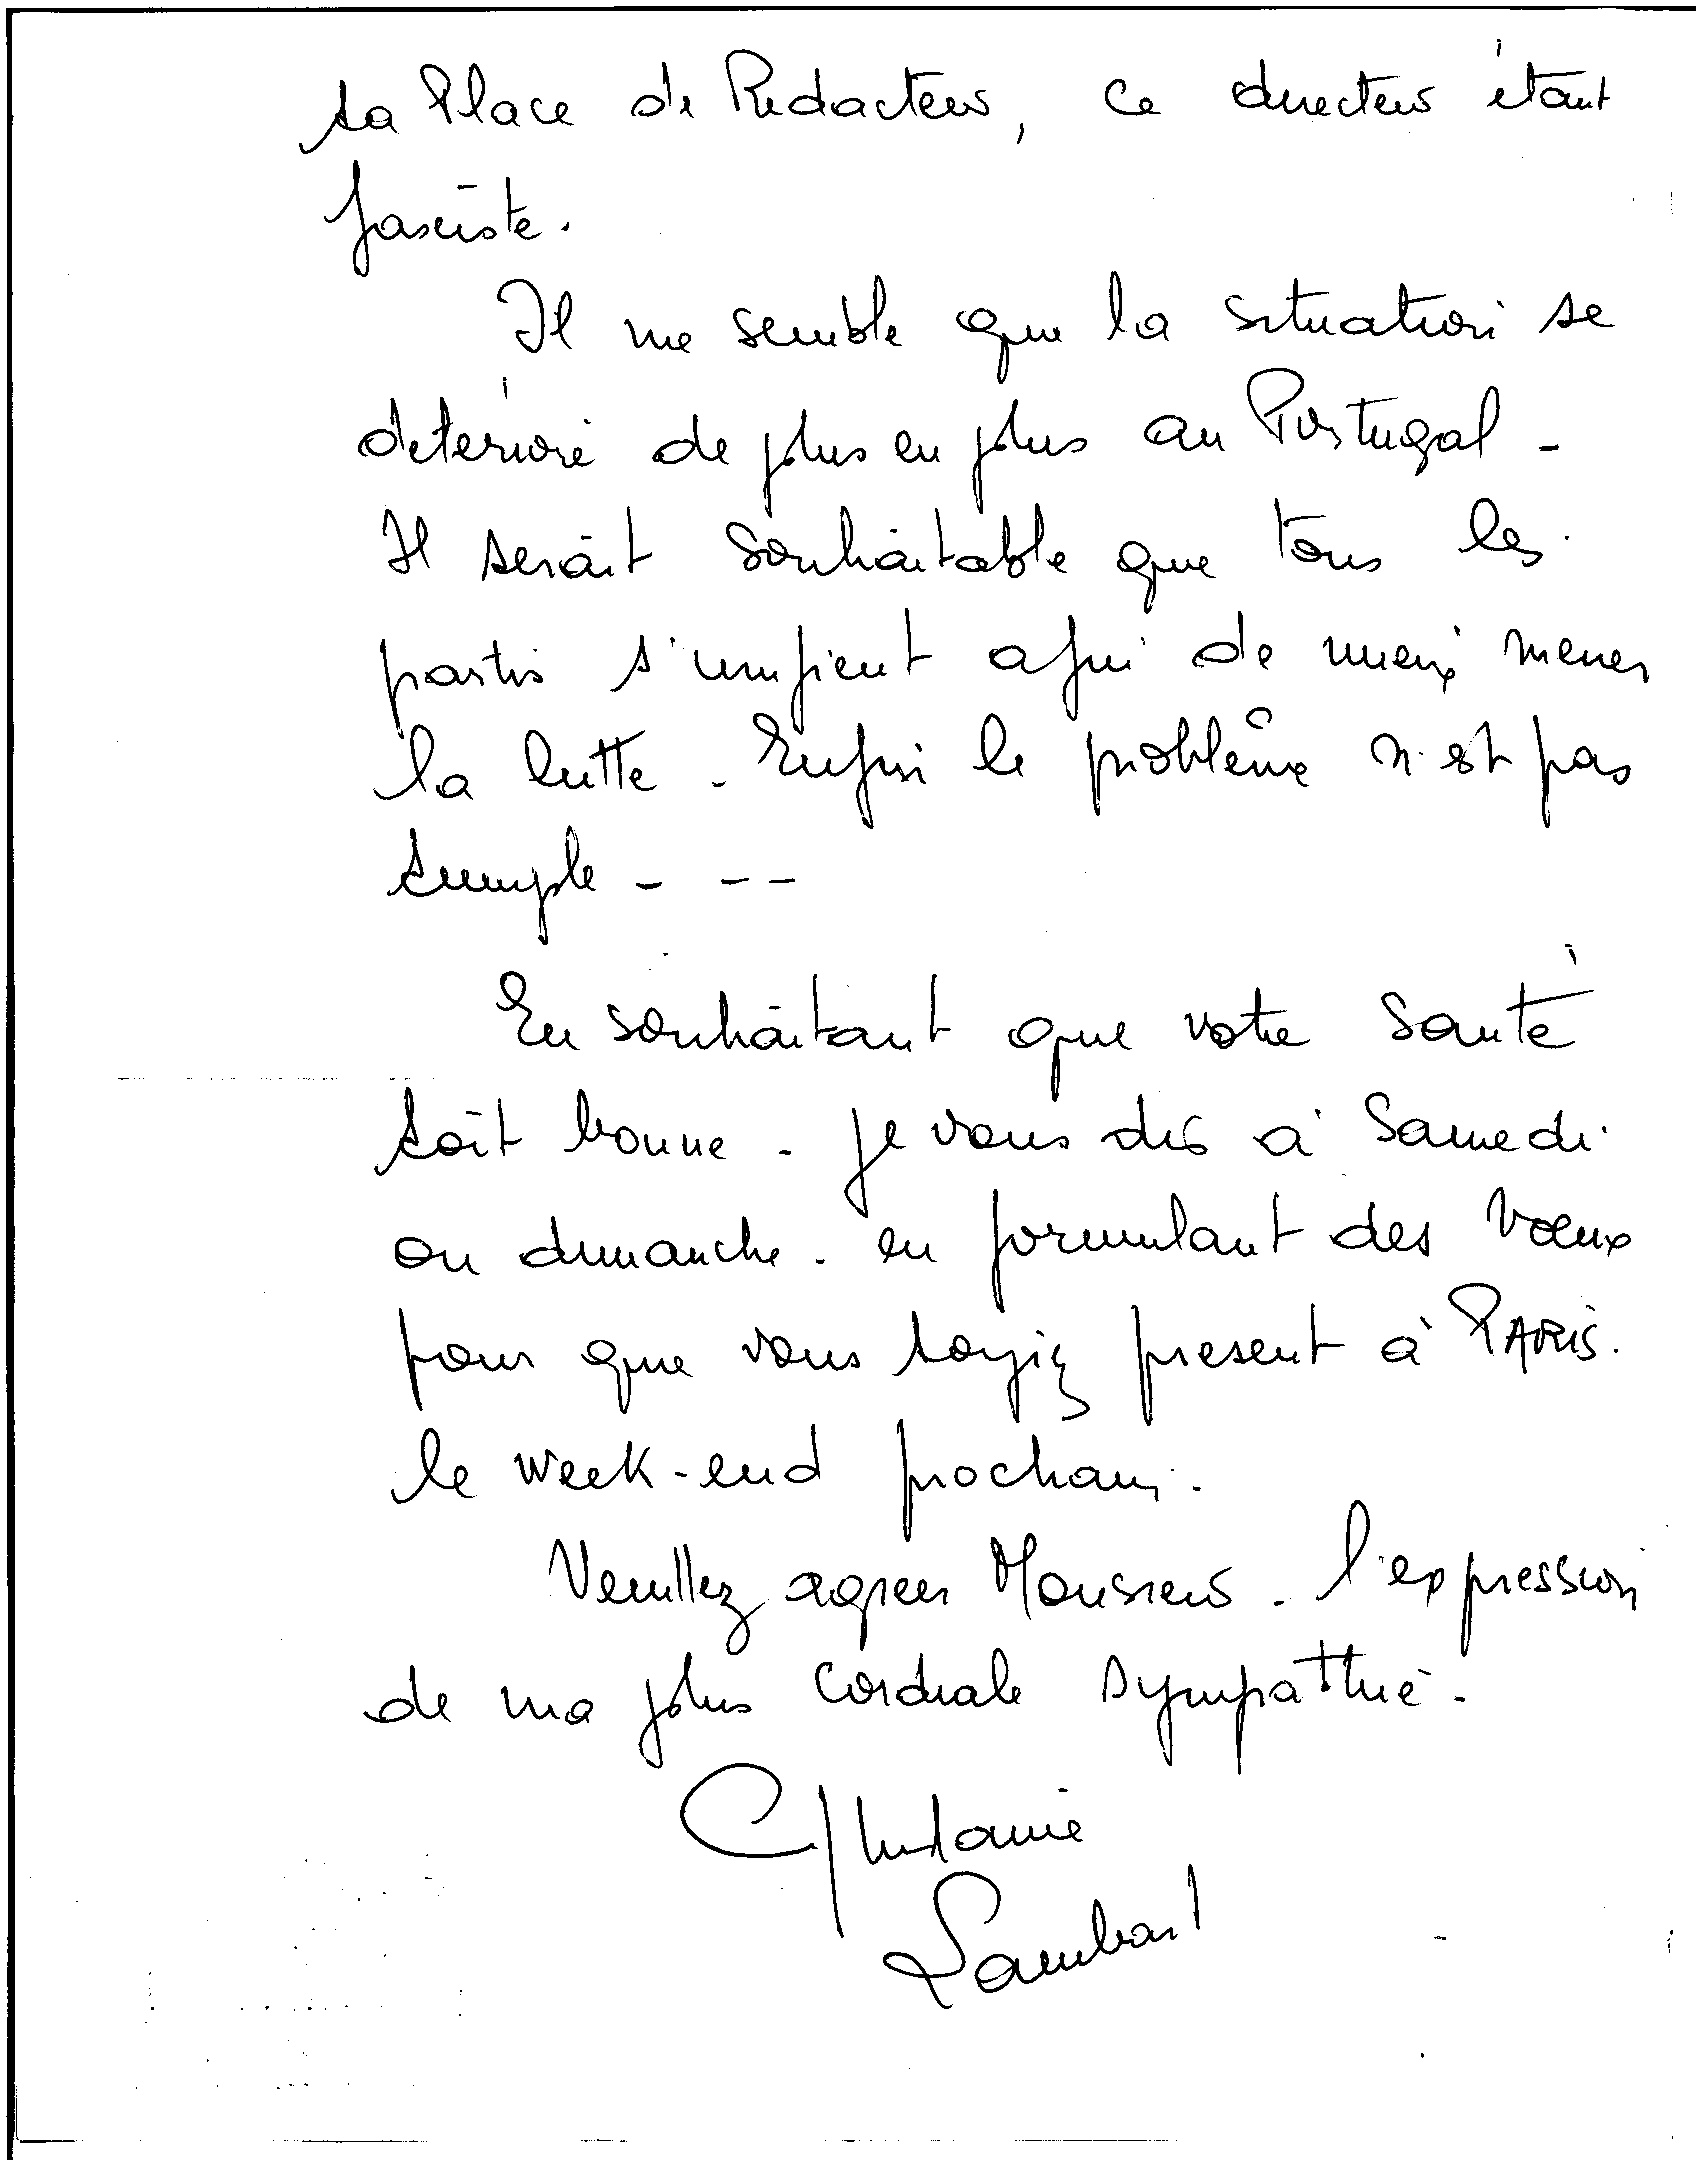 sa Place de Rédacteur, ce directeur étant
fasciste.
Il me semble que la situation se
déteriore de plus en plus au Portugal -
Il serait souhaitable que tous les
partis s'unifient afin de mieux mener
la lutte - Enfin le problème n'est pas
simple - - -
En souhaitant que votre santé
soit bonne - je vous dis à Samedi
ou dimanche - en formulant des vœux
pour que vous soyiez présent à PARIS.
le week-end prochain.
Veuillez agréer Monsieur - l'expression
de ma plus cordiale sympathie -
Ghislaine